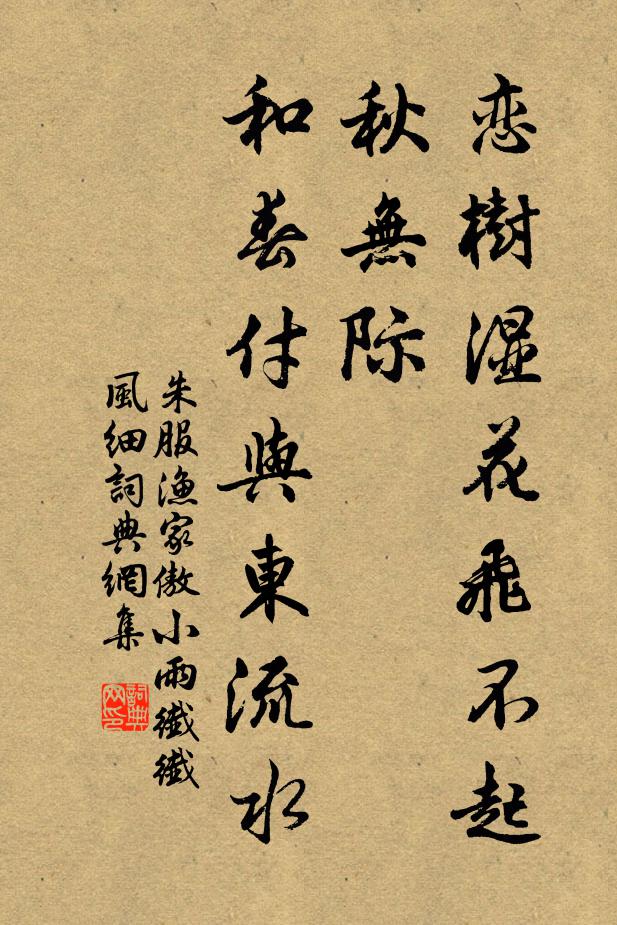 恋樹湿花飛不起
秋無際
和春付與東流水
朱服漁家傲小雨纖纖
風細詞典網集
詞典网印